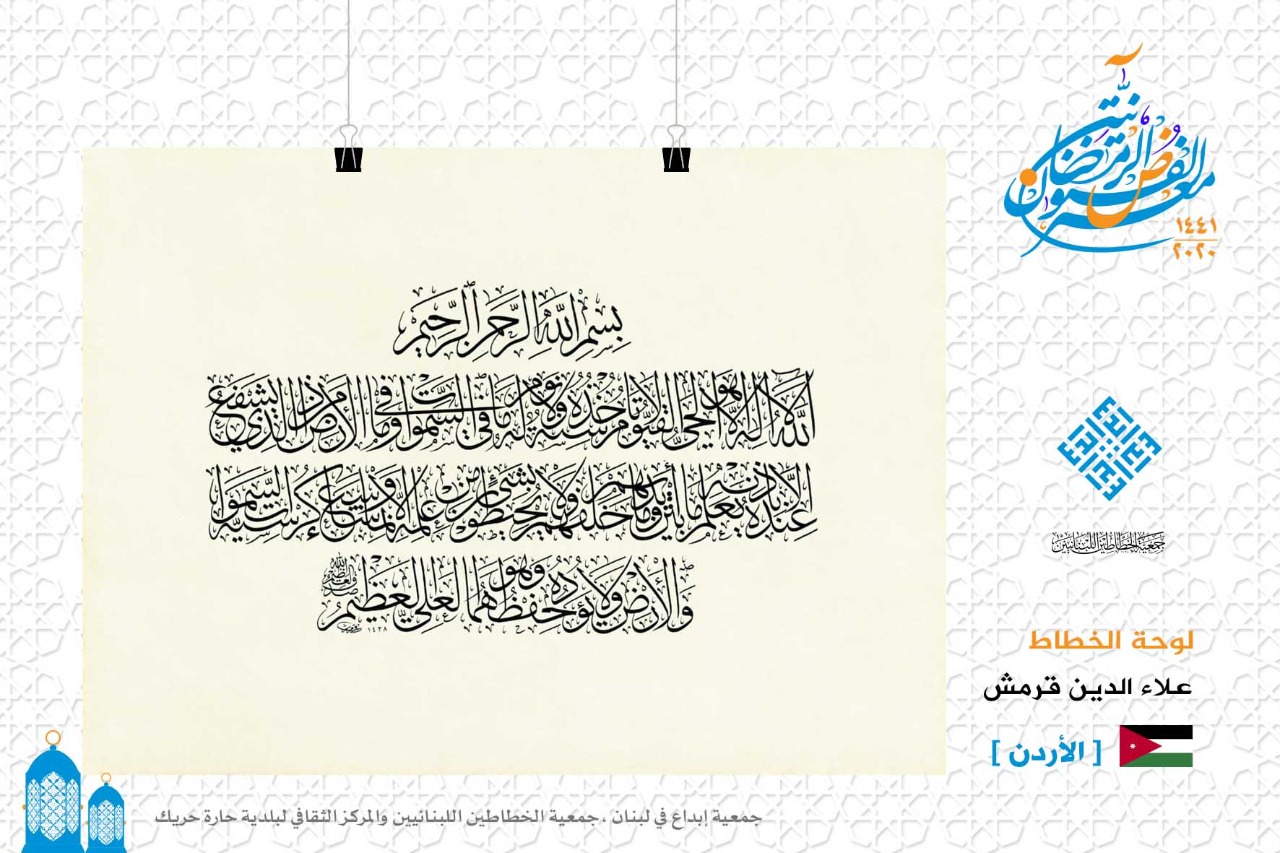 معرض الفنون الرمضانية
١٤٤١
٢٠٢٠
بسم الله الرحمن الرحيم
الله لا إله إلا هو الحي القيوم لا تأخذه سنة ولا نوم له ما في السموات وما في الأرض من ذا الذي يشفع
عنده إلا بإذنه يعلم ما بين أيديهم وما خلفهم ولا يحيطون بشيء من علمه إلا بما شاء وسع كرسيه السموات
والأرض ولا يؤده حفظهما وهو العلي العظيم
١٤٣٨
جمعية الخطاطين اللبنانيين
لوحة الخطاط
علاء الدين قرمش
[ الأردن ]
جمعية إبداع في لبنان ، جمعية الخطاطين اللبنانيين والمركز الثقافي لبلدية حارة حريك